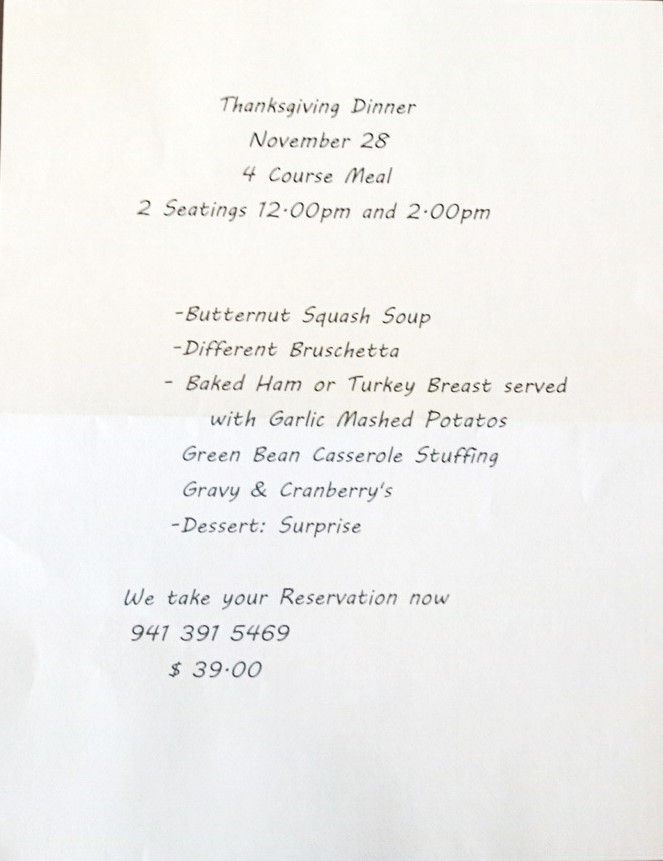 Thanksgiving Dinner
November 28
4 Course Meal
2 Seatings 12.00pm and 2.00pm
-Butternut Squash Soup
-Different Bruschetta
- Baked Ham or Turkey Breast served
with Garlic Mashed Potatos
Green Bean Casserole Stuffing
Gravy & Cranberry's
-Dessert: Surprise
We take your Reservation now
941 391 5469
$ 39.00